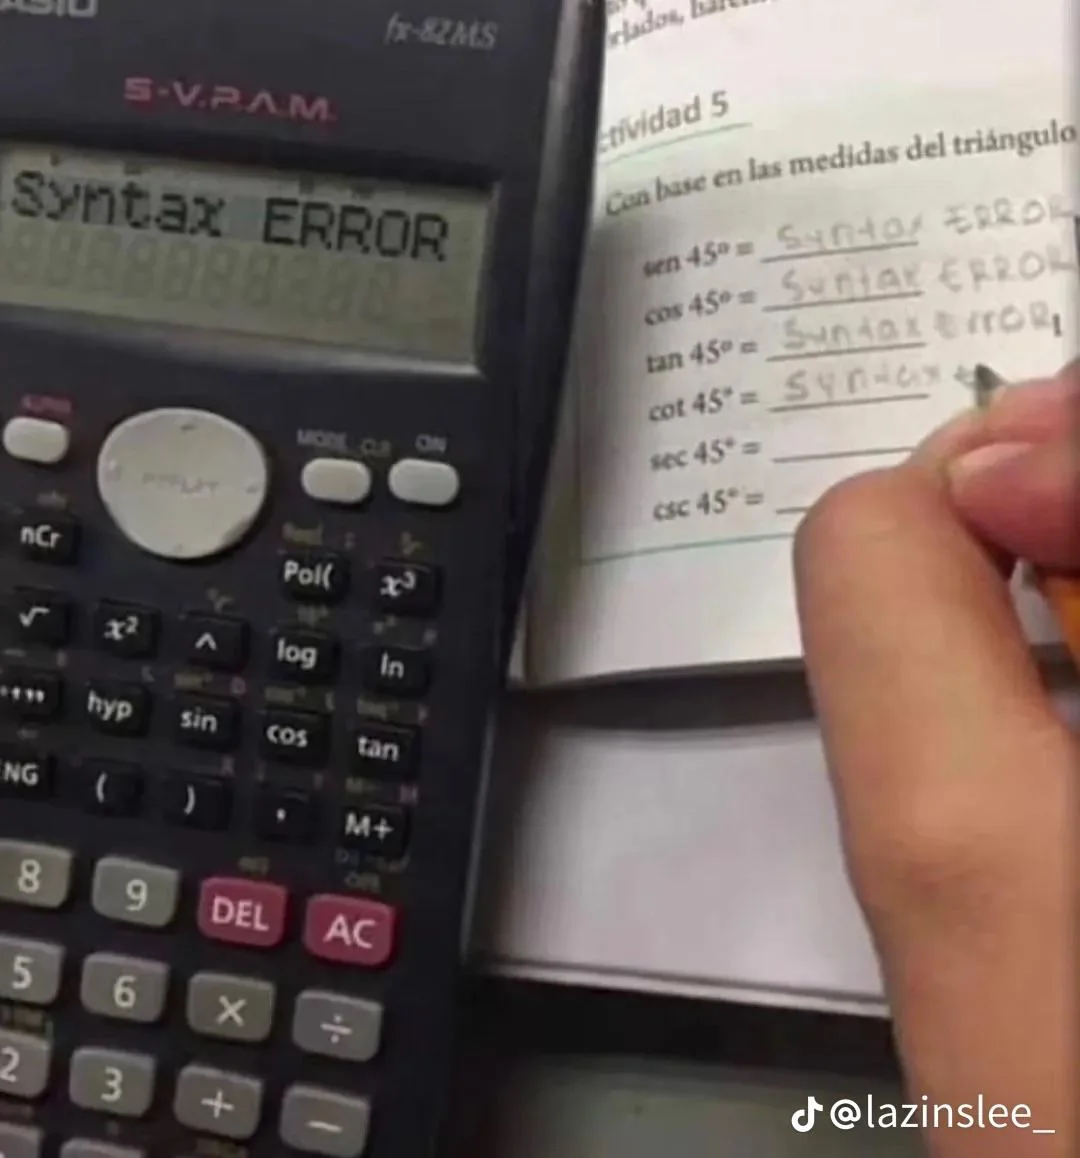 CASIO
fx-82MS
S-V.P.A.M.
Syntax ERROR
ALPHA
MODE CLR ON
REPLAY
nCr
Pol( x³
√ x² ^ log ln
hyp sin cos tan
NG ( ) , M+
8 9 DEL AC
5 6 × ÷
2 3 + −
rlados,
ctividad 5
Con base en las medidas del triángulo
sen 45° = Syntax ERROR
cos 45° = Syntax ERROR
tan 45° = Syntax ErrOR
cot 45° = Syntax
sec 45° =
csc 45° =
@lazinslee_